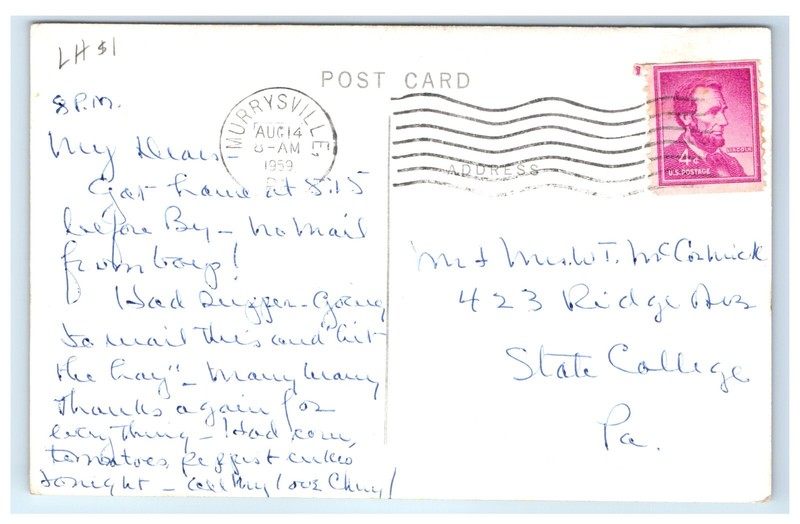 LH $1
POST CARD
8 P.M.
MURRYSVILLE,
AUG 14
8-AM
1959
My Dears -
Got home at 5:15
before By - no mail
from boys!
Had supper - Going
to mail this and "hit
the hay" - Many many
thanks again for
everything - Had corn,
tomatoes, & cukes
tonight - all my love
ADDRESS
LINCOLN
4¢
U.S. POSTAGE
Mr & Mrs. W. T. McCormick
423 Ridge Ave
State College
Pa.